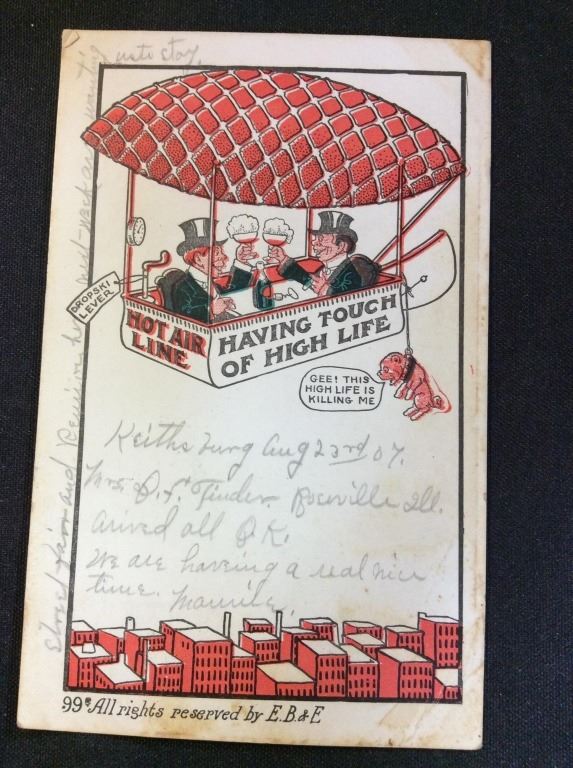 DROPSKI
LEVER
HOT AIR
LINE
HAVING TOUCH
OF HIGH LIFE
GEE! THIS
HIGH LIFE IS
KILLING ME
Keithsburg Aug 23rd 07.
Mrs. Tinder. Roseville Ill.
Arived all O.K.
We are having a real nice
time.
street fair and Reunion here next week are wanting
us to stay.
99e All rights reserved by E.B.&E